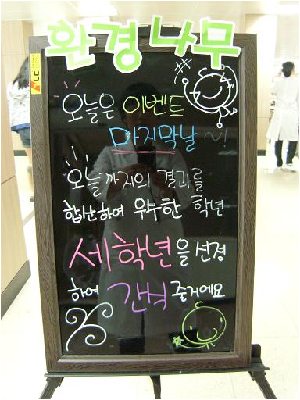 환경나무
오늘은 이벤트
마지막날~!
오늘까지의 결과를
합산하여 우수한 학년
세학년을 선정
하여 간식 줄거에요